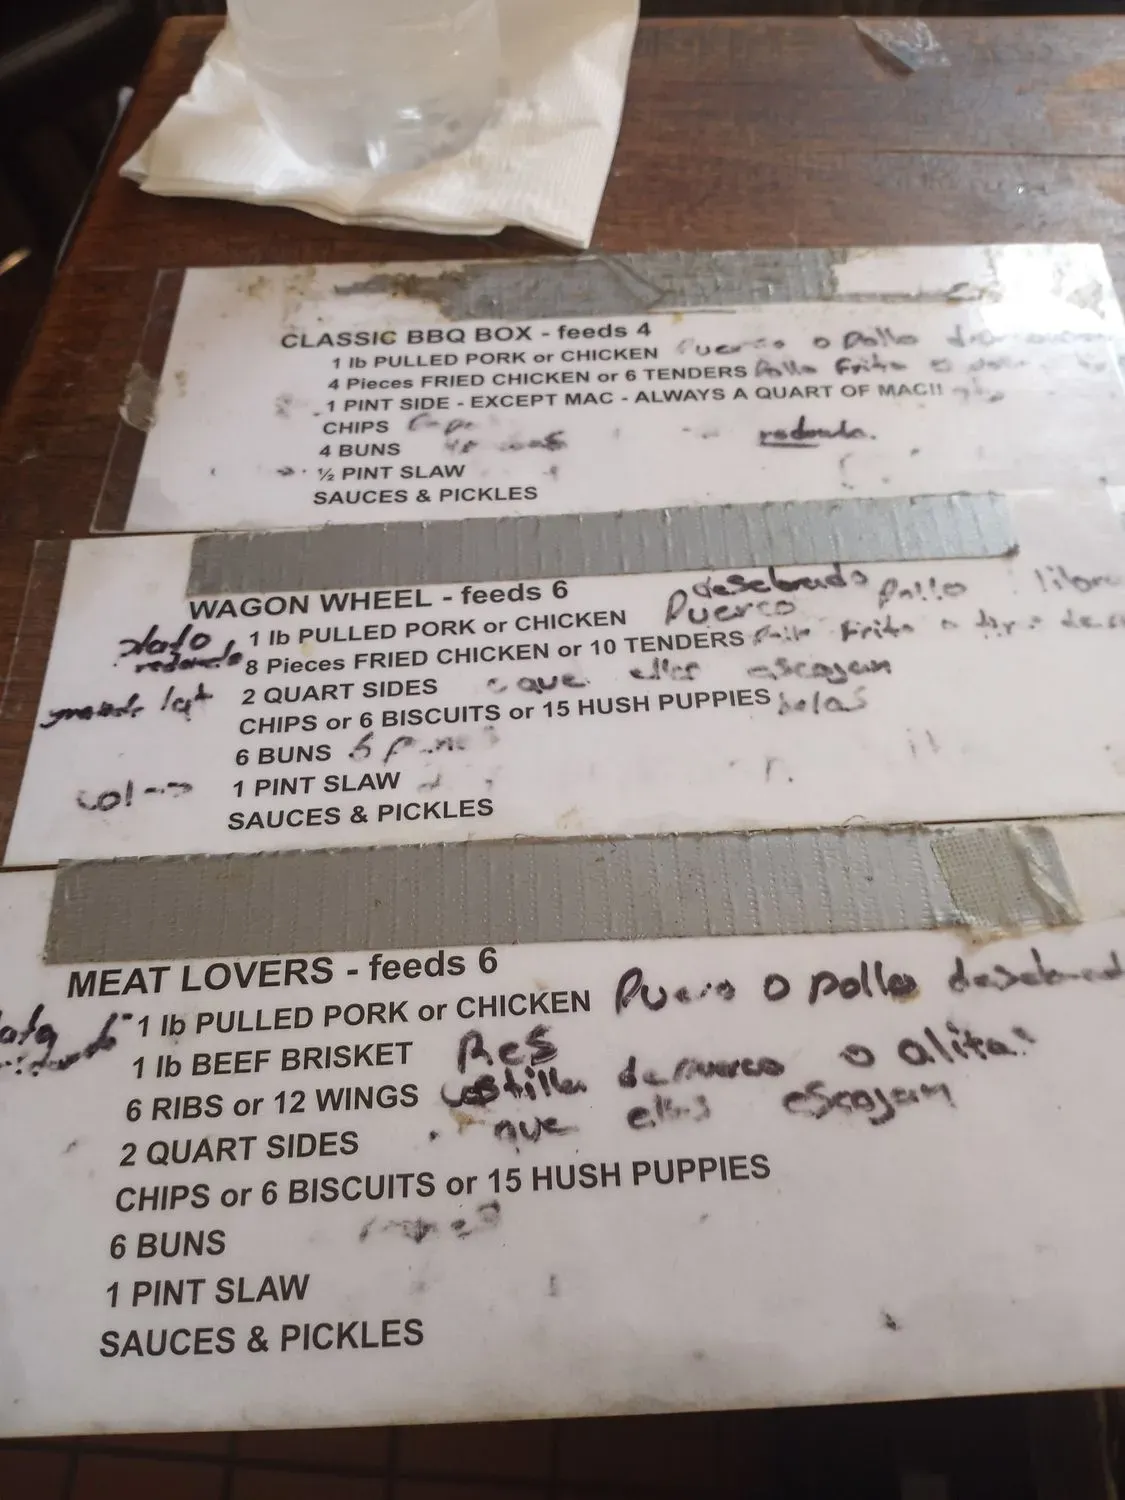 CLASSIC BBQ BOX - feeds 4
1 lb PULLED PORK or CHICKEN Puerco o pollo
4 Pieces FRIED CHICKEN or 6 TENDERS Pollo Frito o
1 PINT SIDE - EXCEPT MAC - ALWAYS A QUART OF MAC!!
CHIPS
redondo.
4 BUNS
½ PINT SLAW
SAUCES & PICKLES
WAGON WHEEL - feeds 6 desebrado
plato 1 lb PULLED PORK or CHICKEN Puerco pollo libra
redondo 8 Pieces FRIED CHICKEN or 10 TENDERS Frito o
2 QUART SIDES que ellos escojan
CHIPS or 6 BISCUITS or 15 HUSH PUPPIES bolas
6 BUNS 6 panes
1 PINT SLAW
SAUCES & PICKLES
MEAT LOVERS - feeds 6
1 lb PULLED PORK or CHICKEN Puerco o pollo
1 lb BEEF BRISKET Res
6 RIBS or 12 WINGS costilla de puerco o alitas
2 QUART SIDES que ellos escojan
CHIPS or 6 BISCUITS or 15 HUSH PUPPIES
6 BUNS panes
1 PINT SLAW
SAUCES & PICKLES